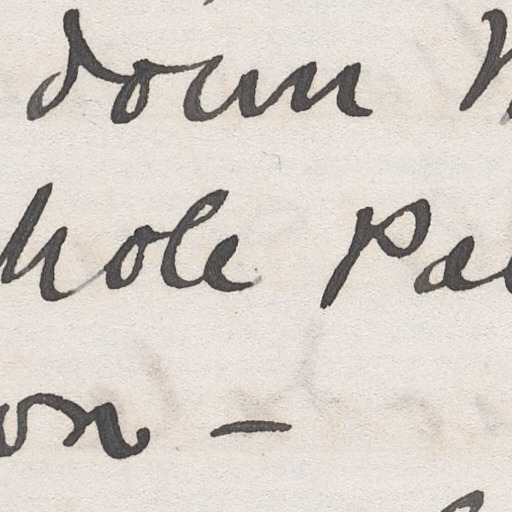 down
hole Pa
on –